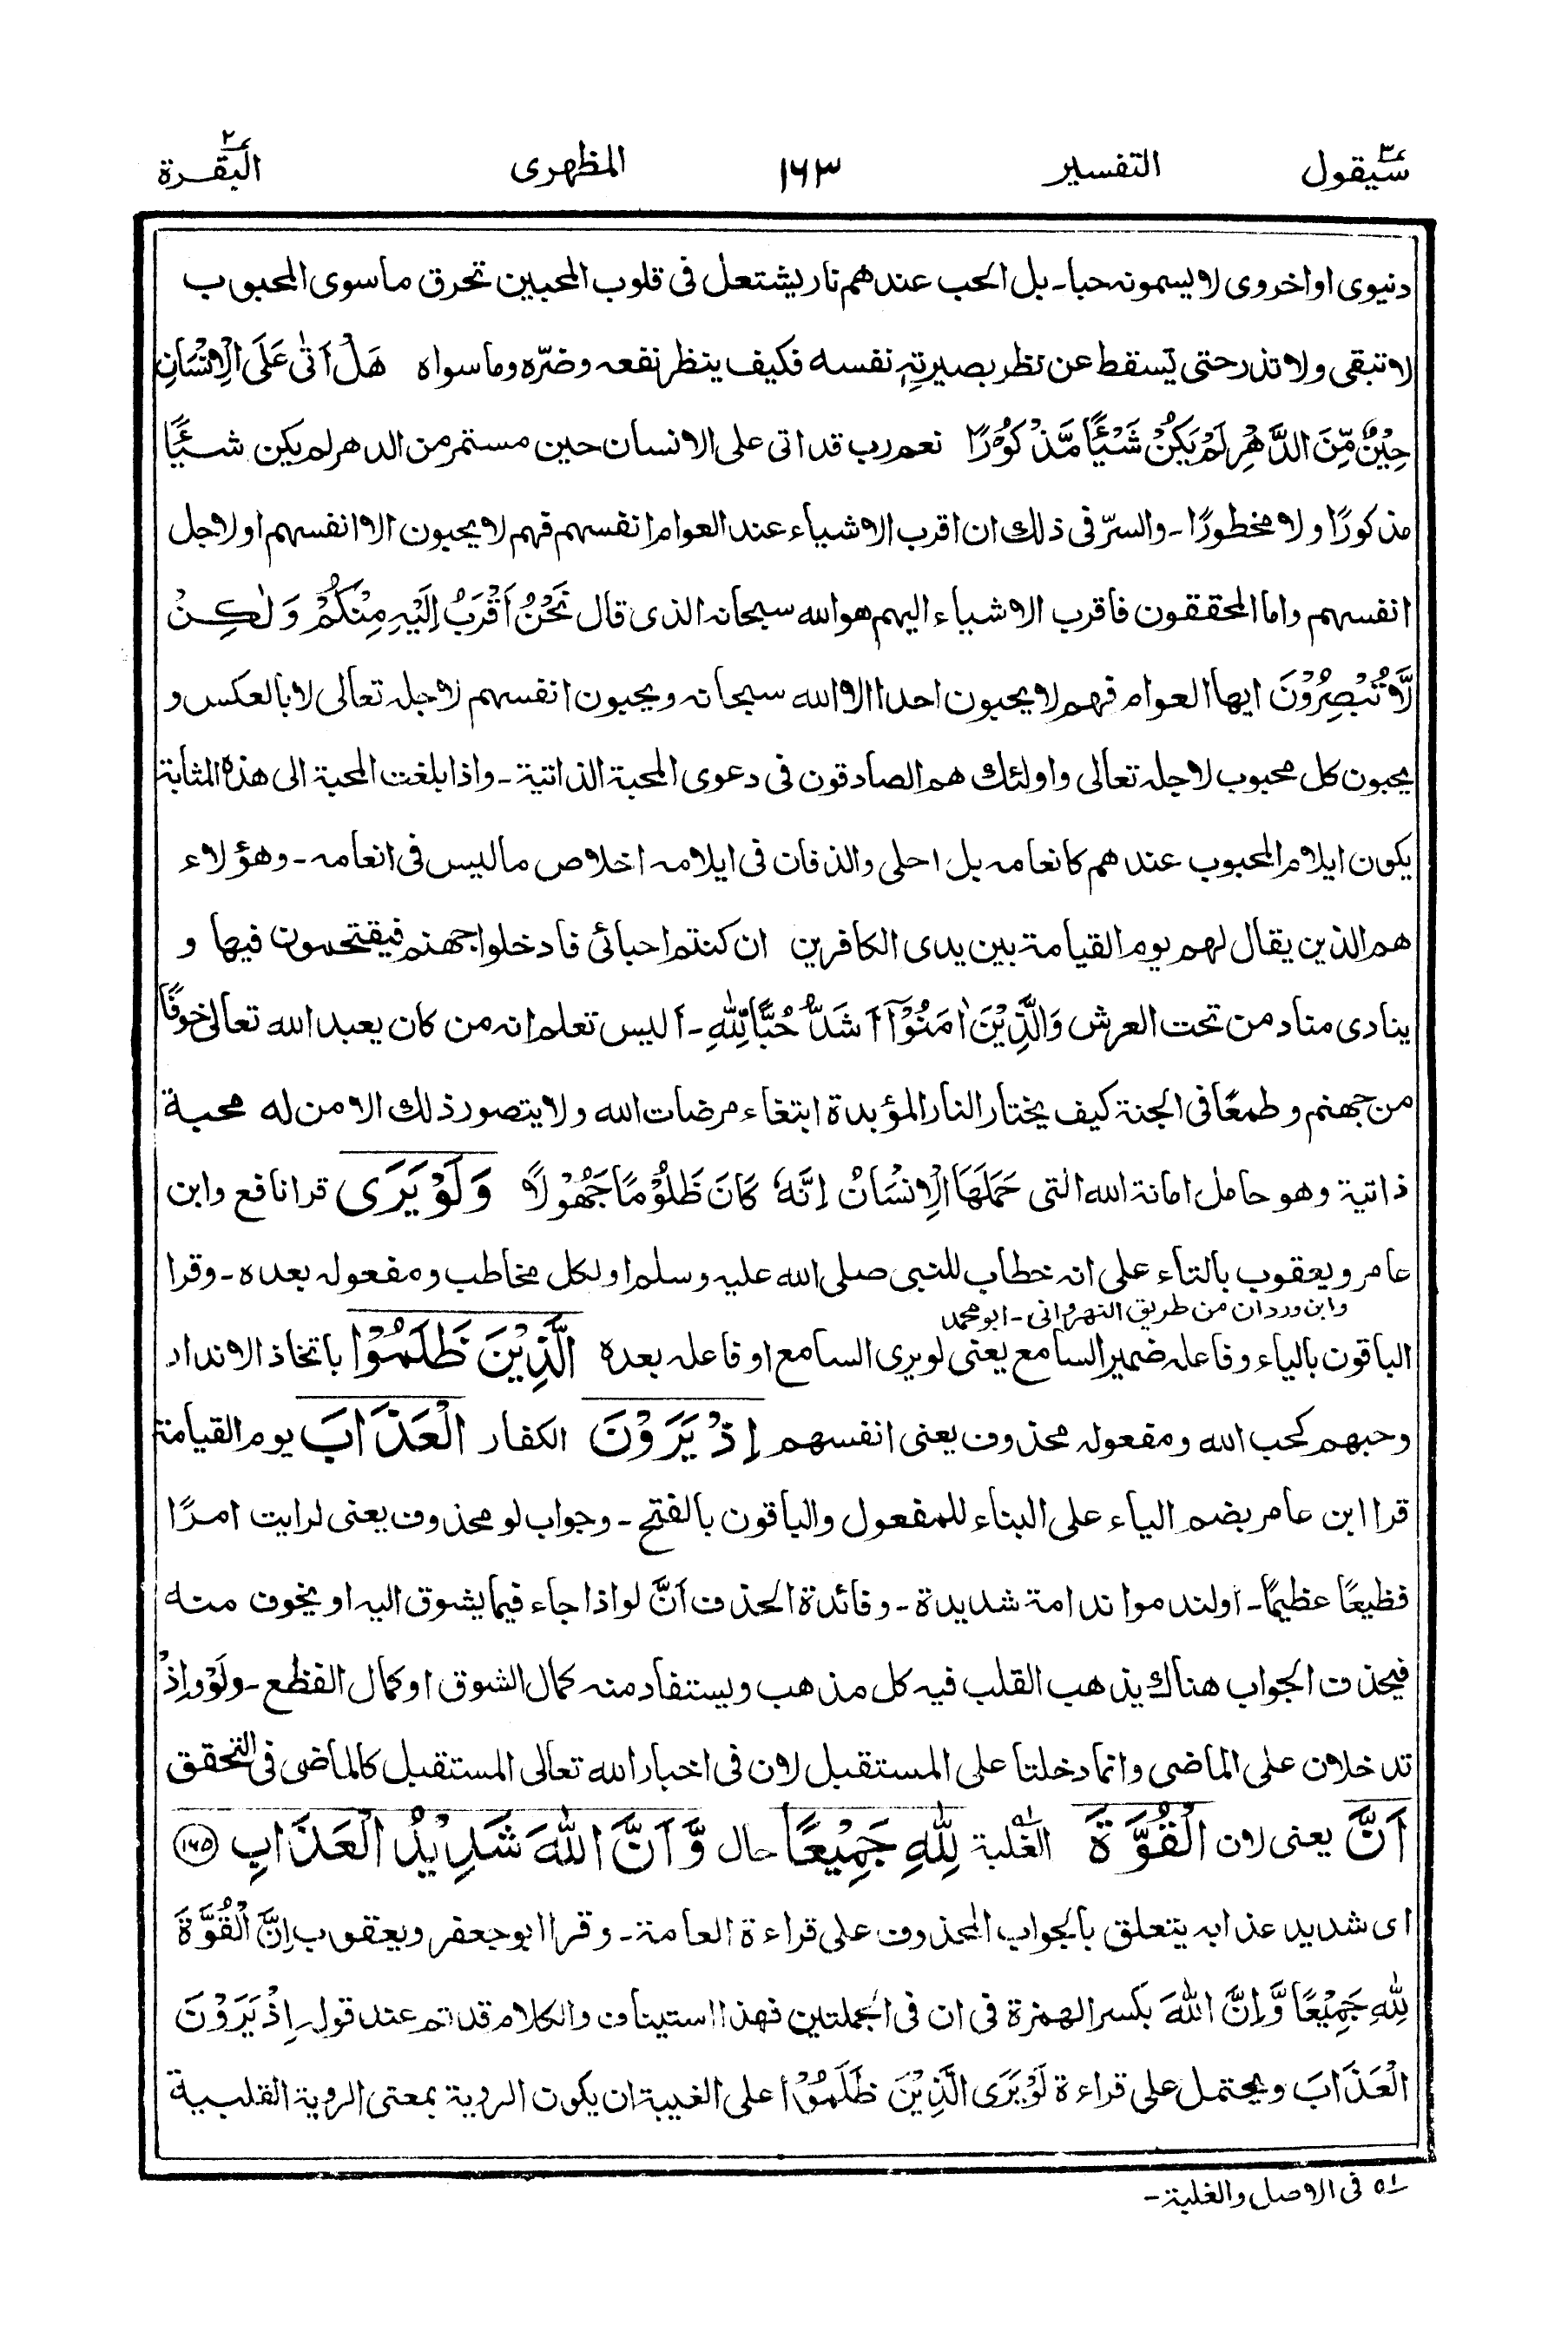 سيقول ٢ التفسير ١٦٣ المظهرى البقرة ٢
دنيوى او اخروى لا يسمونه حبا ـ بل الحب عندهم نار يشتعل فى قلوب المحبين تحرق ما سوى المحبوب
لا تبقى ولا تذر حتى يسقط عن نظر بصيرته نفسه فكيف ينظر نفعه وضرّه وما سواه هَلْ اَتٰى عَلَى الْاِنْسَانِ
حِيْنٌ مِّنَ الدَّهْرِ لَمْ يَكُنْ شَيْـًٔا مَّذْكُوْرًا نعم رب قد اتى على الانسان حين مستمر من الدهر لم يكن شيـًٔا
مذكورًا ولا مخطورًا ـ والسرّ فى ذلك ان اقرب الاشياء عند العوام انفسهم فهم لا يحبون الا انفسهم او لاجل
انفسهم واما المحققون فاقرب الاشياء اليهم هو الله سبحانه الذى قال نَحْنُ اَقْرَبُ اِلَيْهِ مِنْكُمْ وَلٰكِنْ
لَّا تُبْصِرُوْنَ ايها العوام فهم لا يحبون احدا الا الله سبحانه ويحبون انفسهم لاجله تعالى لا بالعكس و
يحبون كل محبوب لاجله تعالى واولئك هم الصادقون فى دعوى المحبة الذاتية ـ واذا بلغت المحبة الى هذه المثابة
يكون ايلام المحبوب عندهم كانعامه بل احلى والذ فان فى ايلامه اخلاص ما ليس فى انعامه ـ وهؤلاء
هم الذين يقال لهم يوم القيامة بين يدى الكافرين ان كنتم احبائى فادخلوا جهنم فيقتحمون فيها و
ينادى مناد من تحت العرش وَالَّذِيْنَ اٰمَنُوْٓا اَشَدُّ حُبًّا لِّلّٰهِ ـ أليس تعلم انه من كان يعبد الله تعالى خوفًا
من جهنم وطمعًا فى الجنة كيف يختار النار المؤبدة ابتغاء مرضات الله ولا يتصور ذلك الا من له محبة
ذاتية وهو حامل امانة الله التى حَمَلَهَا الْاِنْسَانُ اِنَّهٗ كَانَ ظَلُوْمًا جَهُوْلًا وَلَوْ يَرَى قرا نافع وابن
عامر ويعقوب بالتاء على انه خطاب للنبى صلى الله عليه وسلم او لكل مخاطب ومفعوله بعده ـ وقرا
وابن وردان من طريق النهروانى ـ ابو محمد
الباقون بالياء وفاعله ضمير السامع يعنى لو يرى السامع او فاعله بعده الَّذِيْنَ ظَلَمُوْٓا باتخاذ الانداد
وحبهم كحب الله ومفعوله محذوف يعنى انفسهم اِذْ يَرَوْنَ الكفار الْعَذَابَ يوم القيامة
قرا ابن عامر بضم الياء على البناء للمفعول والباقون بالفتح ـ وجواب لو محذوف يعنى لرايت امرًا
فظيعًا عظيمًا ـ اولندموا ندامة شديدة ـ وفائدة الحذف اَنَّ لو اذا جاء فيما يشوق اليه او يخوف منه
فيحذف الجواب هناك يذهب القلب فيه كل مذهب ويستفاد منه كمال الشوق او كمال الفظع ـ ولَوْ واِذْ
تدخلان على الماضى وانما دخلتا على المستقبل لان فى اخبار الله تعالى المستقبل كالماضى فى التحقق
اَنَّ يعنى لان الْقُوَّةَ الغلبة ١ه لِلّٰهِ جَمِيْعًا حال وَّاَنَّ اللّٰهَ شَدِيْدُ الْعَذَابِ ١٦٥
اى شديد عذابه يتعلق بالجواب المحذوف على قراءة العامة ـ وقرا ابو جعفر ويعقوب اِنَّ الْقُوَّةَ
لِلّٰهِ جَمِيْعًا وَّاِنَّ اللّٰهَ بكسر الهمزة فى ان فى الجملتين فهذا استيناف والكلام قد تم عند قوله اِذْ يَرَوْنَ
الْعَذَابَ ويحتمل على قراءة لَوْ يَرَى الَّذِيْنَ ظَلَمُوْٓا على الغيبة ان يكون الروية بمعنى الروية القلبية
١ه فى الاصل والغلبة ـ